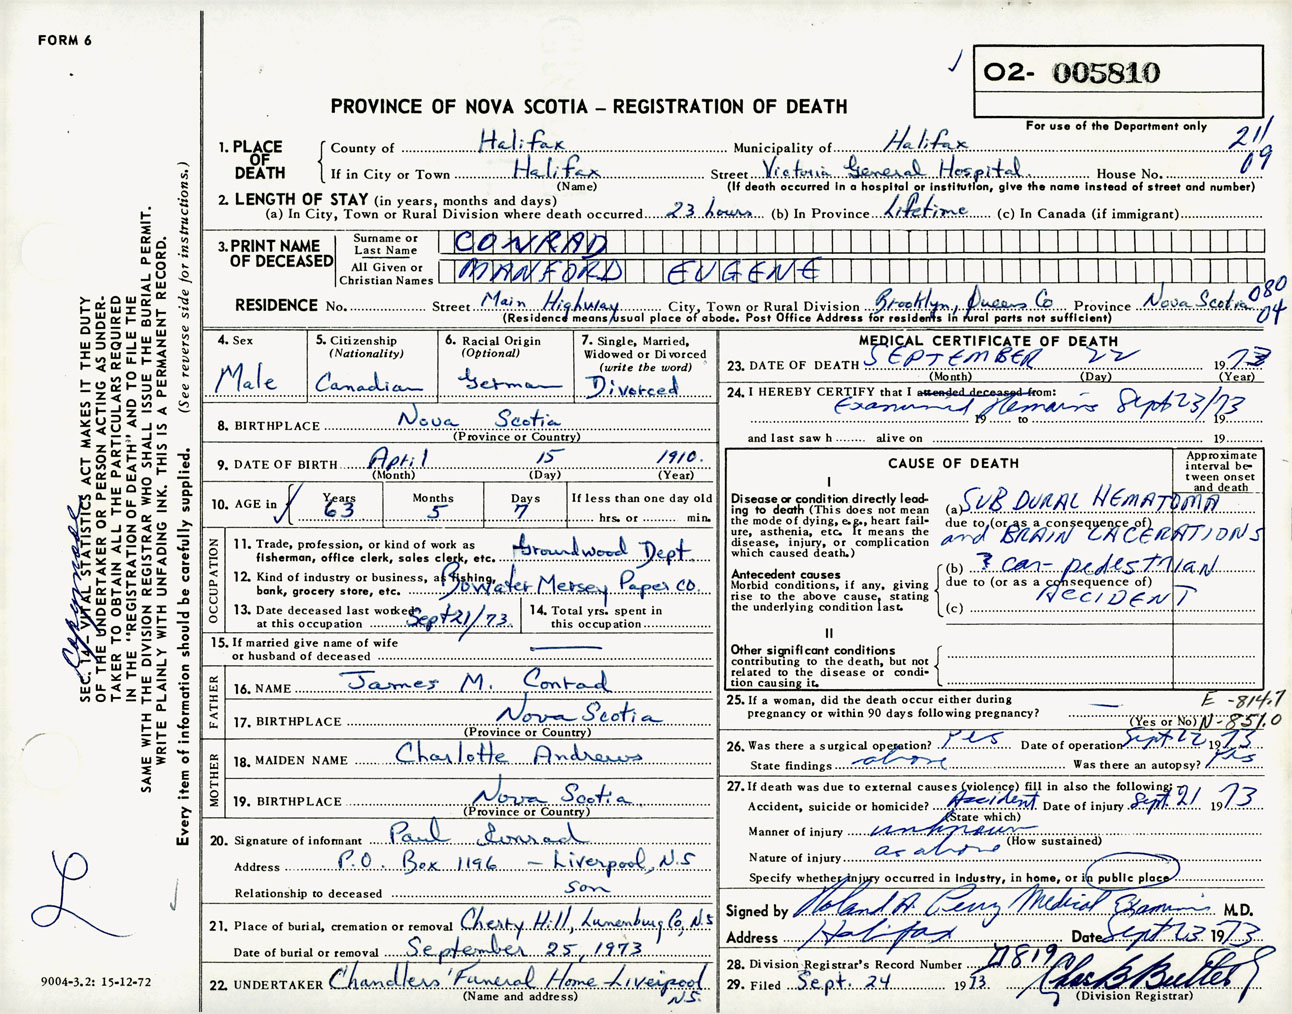 FORM 6
✓ O2- 005810
PROVINCE OF NOVA SCOTIA – REGISTRATION OF DEATH
For use of the Department only
21/
09
1. PLACE OF DEATH
County of Halifax Municipality of Halifax
If in City or Town Halifax Street Victoria General Hospital House No.
(Name) (If death occurred in a hospital or institution, give the name instead of street and number)
2. LENGTH OF STAY (in years, months and days)
(a) In City, Town or Rural Division where death occurred 23 hours (b) In Province Lifetime (c) In Canada (if immigrant)
3. PRINT NAME OF DECEASED
Surname or Last Name CONRAD
All Given or Christian Names MANFORD EUGENE
RESIDENCE No. Street Main Highway City, Town or Rural Division Brooklyn, Queens Co Province Nova Scotia
080
04
(Residence means usual place of abode. Post Office Address for residents in rural parts not sufficient)
4. Sex
Male
5. Citizenship
(Nationality)
Canadian
6. Racial Origin
(Optional)
German
7. Single, Married,
Widowed or Divorced
(write the word)
Divorced
8. BIRTHPLACE Nova Scotia
(Province or Country)
9. DATE OF BIRTH April 15 1910.
(Month) (Day) (Year)
10. AGE in
Years Months Days If less than one day old
63 5 7 hrs. or min.
OCCUPATION
11. Trade, profession, or kind of work as
fisherman, office clerk, sales clerk, etc. Groundwood Dept.
12. Kind of industry or business, as fishing,
bank, grocery store, etc. Bowater Mersey Paper Co.
13. Date deceased last worked
at this occupation Sept 21/73
14. Total yrs. spent in
this occupation
15. If married give name of wife
or husband of deceased
FATHER
16. NAME James M. Conrad
17. BIRTHPLACE Nova Scotia
(Province or Country)
MOTHER
18. MAIDEN NAME Charlotte Andrews
19. BIRTHPLACE Nova Scotia
(Province or Country)
20. Signature of informant Paul Conrad
Address P.O. Box 1196 – Liverpool, N.S
Relationship to deceased son
21. Place of burial, cremation or removal Cherry Hill, Lunenburg Co, N.S
Date of burial or removal September 25, 1973
22. UNDERTAKER Chandlers' Funeral Home Liverpool
N.S.
(Name and address)
MEDICAL CERTIFICATE OF DEATH
23. DATE OF DEATH SEPTEMBER 22 1973
(Month) (Day) (Year)
24. I HEREBY CERTIFY that I attended deceased from:
Examined Remains Sept 23/73
19 to 19
and last saw h alive on 19
CAUSE OF DEATH
Approximate
interval be-
tween onset
and death
I
Disease or condition directly lead-
ing to death (This does not mean
the mode of dying, e.g., heart fail-
ure, asthenia, etc. It means the
disease, injury, or complication
which caused death.)
(a) SUB DURAL HEMATOMA
due to (or as a consequence of)
and BRAIN LACERATIONS
Antecedent causes
Morbid conditions, if any, giving
rise to the above cause, stating
the underlying condition last.
(b) ? car-pedestrian
due to (or as a consequence of)
ACCIDENT
(c)
II
Other significant conditions
contributing to the death, but not
related to the disease or condi-
tion causing it.
25. If a woman, did the death occur either during
pregnancy or within 90 days following pregnancy? —
(Yes or No)
E -814.7
N-851.0
26. Was there a surgical operation? Yes Date of operation Sept 22 1973
State findings above Was there an autopsy? Yes
27. If death was due to external causes (violence) fill in also the following:
Accident, suicide or homicide? Accident Date of injury Sept. 21 1973
(State which)
Manner of injury unknown
(How sustained)
Nature of injury as above
Specify whether injury occurred in industry, in home, or in public place
Signed by Roland A. Perry Medical Examiner M.D.
Address Halifax Date Sept 23 1973
28. Division Registrar's Record Number
29. Filed Sept. 24 1973
(Division Registrar)
SEC. 14 – VITAL STATISTICS ACT MAKES IT THE DUTY
OF THE UNDERTAKER OR PERSON ACTING AS UNDER-
TAKER TO OBTAIN ALL THE PARTICULARS REQUIRED
IN THE "REGISTRATION OF DEATH" AND TO FILE THE
SAME WITH THE DIVISION REGISTRAR WHO SHALL ISSUE THE BURIAL PERMIT.
WRITE PLAINLY WITH UNFADING INK. THIS IS A PERMANENT RECORD.
Every item of information should be carefully supplied. (See reverse side for instructions.)
9004-3.2: 15-12-72